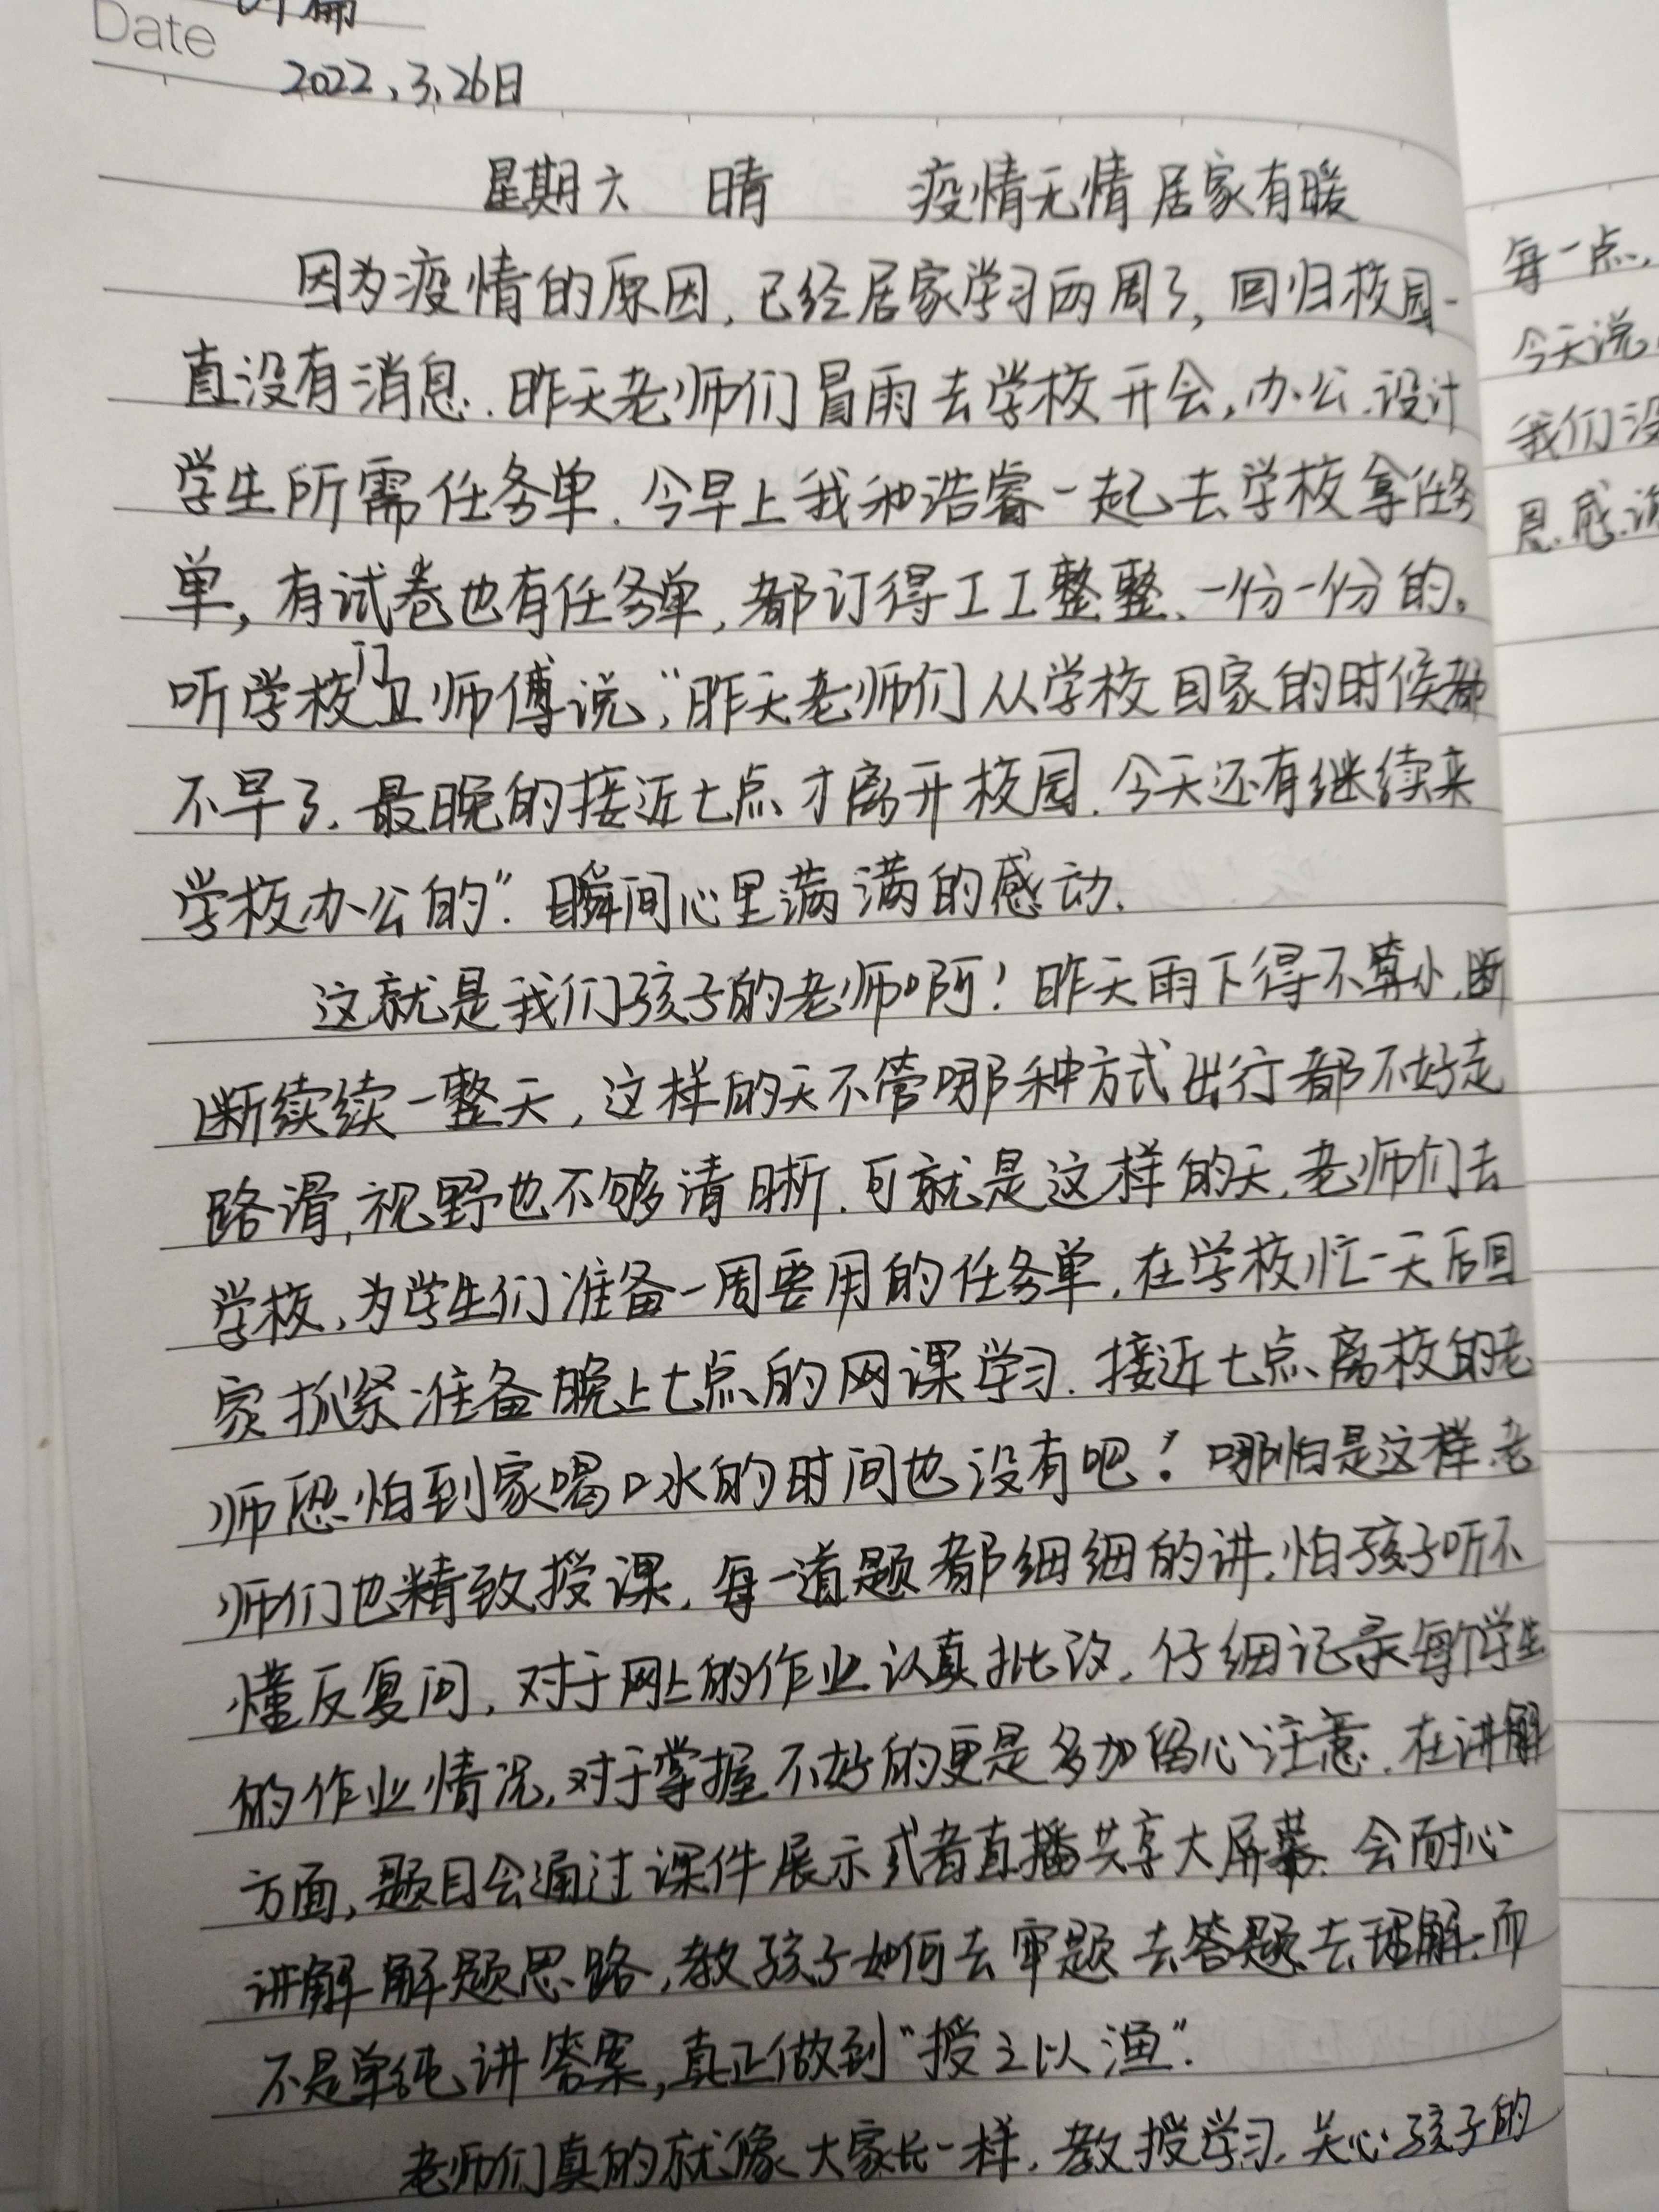 Date
2022.3.26日
星期六 晴 疫情无情 居家有暖
因为疫情的原因,已经居家学习两周了,回归校园一
直没有消息.昨天老师们冒雨去学校开会,办公.设计
学生所需任务单.今早上我和浩睿一起去学校拿任务
单,有试卷也有任务单,都订得工工整整、一份一份的。
听学校门卫师傅说,“昨天老师们从学校回家的时候都
不早了.最晚的接近七点才离开校园.今天还有继续来
学校办公的”.瞬间心里满满的感动.
这就是我们孩子的老师啊!昨天雨下得不算小,断
断续续一整天,这样的天不管哪种方式出行都不好走
路滑,视野也不够清晰.可就是这样的天,老师们去
学校,为学生们准备一周要用的任务单,在学校忙一天后回
家抓紧准备晚上七点的网课学习.接近七点离校的老
师恐怕到家喝口水的时间也没有吧!哪怕是这样,老
师们也精致授课,每一道题都细细的讲,怕孩子听不
懂反复问,对于网上的作业认真批改,仔细记录每个学生
的作业情况,对于掌握不好的更是多加留心注意.在讲解
方面,题目会通过课件展示或者直播共享大屏幕.会耐心
讲解解题思路,教孩子如何去审题去答题去理解,而
不是单纯讲答案,真正做到“授之以渔”.
老师们真的就像大家长一样,教授学习,关心孩子的
每一点,
今天说
我们没
恩.感谢